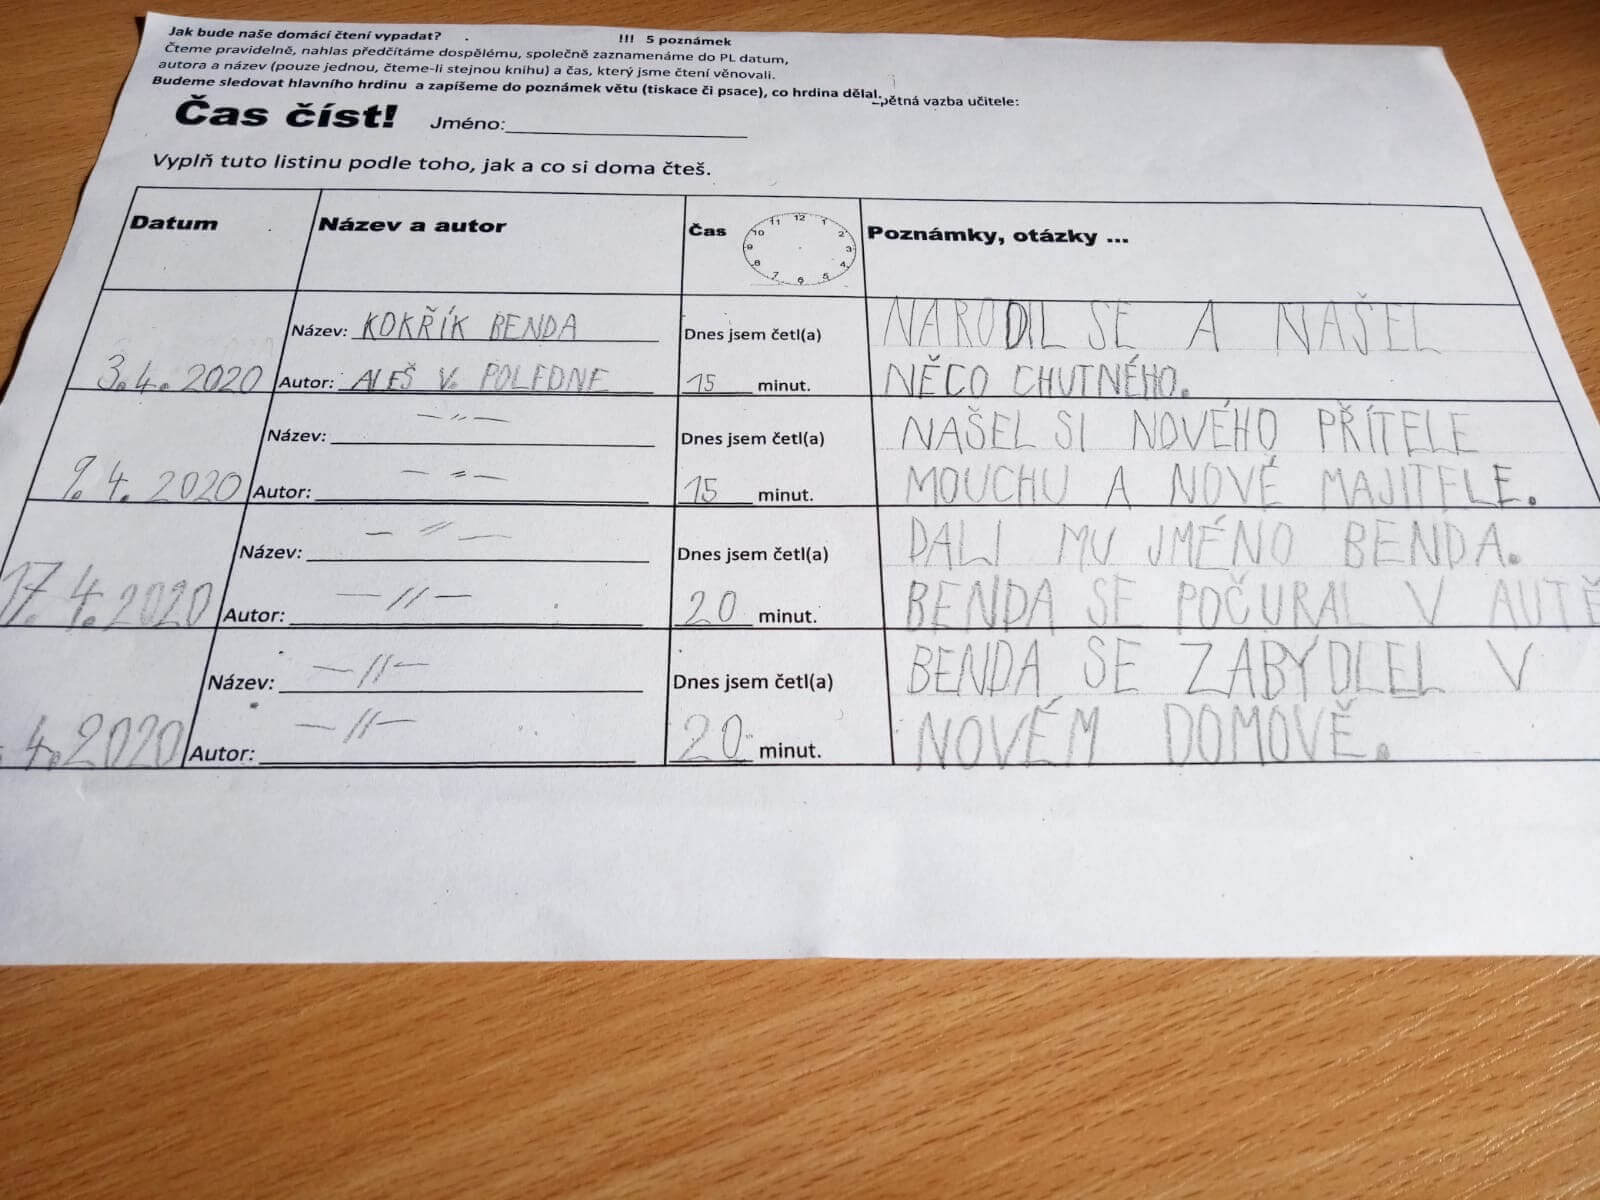 Jak bude naše domácí čtení vypadat? !!! 5 poznámek
Čteme pravidelně, nahlas předčítáme dospělému, společně zaznamenáme do PL datum,
autora a název (pouze jednou, čteme-li stejnou knihu) a čas, který jsme čtení věnovali.
Budeme sledovat hlavního hrdinu a zapíšeme do poznámek větu (tiskace či psace), co hrdina dělal.
pětná vazba učitele:
Čas číst! Jméno:
Vyplň tuto listinu podle toho, jak a co si doma čteš.
Datum Název a autor Čas Poznámky, otázky ...
12 1 2 3 4 5 6 7 8 9 10 11
Název: KOKŘÍK BENDA Dnes jsem četl(a) NARODIL SE A NAŠEL
3.4.2020 Autor: ALEŠ V. POLEDNE 15 minut. NĚCO CHUTNÉHO.
Název: —〃— Dnes jsem četl(a) NAŠEL SI NOVÉHO PŘÍTELE
9.4.2020 Autor: —〃— 15 minut. MOUCHU A NOVÉ MAJITELE.
Název: —〃— Dnes jsem četl(a) DALI MU JMÉNO BENDA.
17.4.2020 Autor: —//— 20 minut. BENDA SE POČURAL V AUTĚ
Název: —//— Dnes jsem četl(a) BENDA SE ZABYDLEL V
.4.2020 Autor: —//— 20 minut. NOVÉM DOMOVĚ.